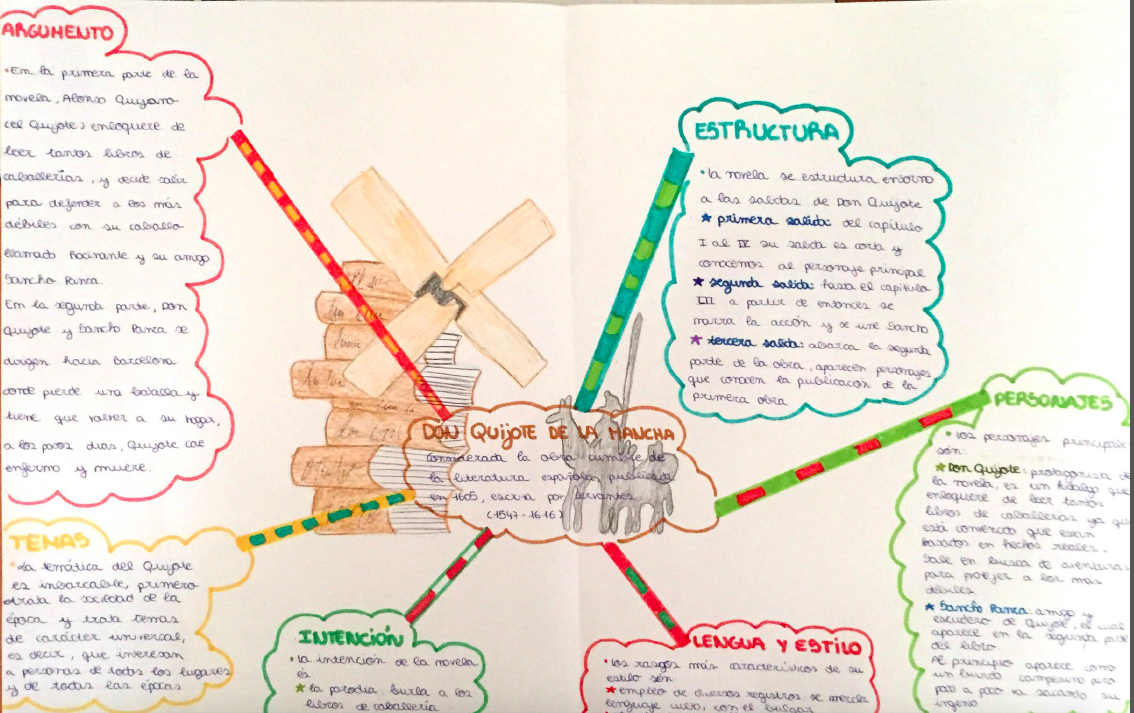 ARGUMENTO
•En la primera parte de la
novela, Alonso Quijano
(el Quijote) enloquere de
leer tantos libros de
caballerías, y decide salir
para defender a los más
débiles con su caballo
llamado Rocinante y su amigo
Sancho Panza.
En la segunda parte, Don
Quijote y Sancho Panza se
dirigen hacia barcelona
donde pierde una batalla y
tiene que volver a su hogar,
a los pocos dias, Quijote cae
enfermo y muere.
TEMAS
•La temática del Quijote
es inabarcable, primero
retrata la sociedad de la
época y trata temas
de carácter universal,
es decir, que interesan
a personas de todos los lugares
y de todas las épocas
DON QUIJOTE DE LA MANCHA
Considerada la obra cumbre de
la literatura española, publicada
en 1605, escrita por Cervantes
(1547-1616)
INTENCIÓN
•la intención de la novela
es
★la parodia, burla a los
libros de caballería
ESTRUCTURA
•la novela se estructura entorno
a las salidas de Don Quijote
★ primera salida: del capítulo
I al IV su salida es corta y
conocemos al personaje principal
★ segunda salida: hasta el capítulo
LII a partir de entonces se
narra la acción y se une Sancho
★ tercera salida: abarca la segunda
parte de la obra, aparecen personajes
que conocen la publicación de la
primera obra
LENGUA Y ESTILO
•los rasgos más característicos de su
estilo son
★empleo de diversos registros se mezcla
lenguaje culto, con el bulgar
PERSONAJES
• los personajes principales
son:
★Don Quijote: protagonista de
la novela, es un hidalgo que
enloquere de leer tantos
libros de caballerías ya que
está convencido que estan
basados en hechos reales.
Sale en busca de aventuras
para proteger a los más
débiles.
★ Sancho Panza: amigo y
escudero de Quijote, el cual
aparece en la segunda parte
del libro.
Al principio aparece como
un burdo campesino pero
poco a poco va sacando su
ingenio